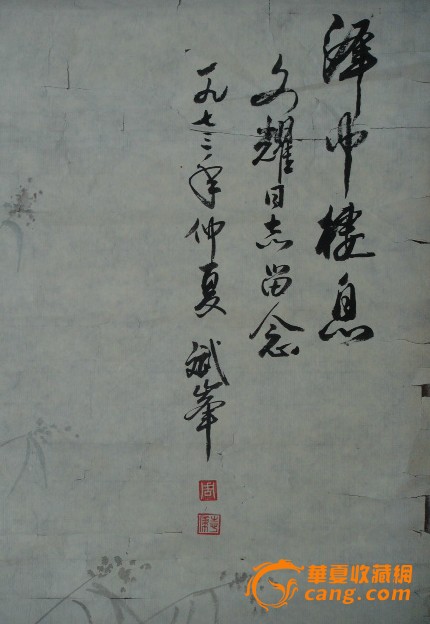 泽中棲息
文耀同志留念
一九七三年仲夏 斌峯
周
華夏收藏網
cang.com